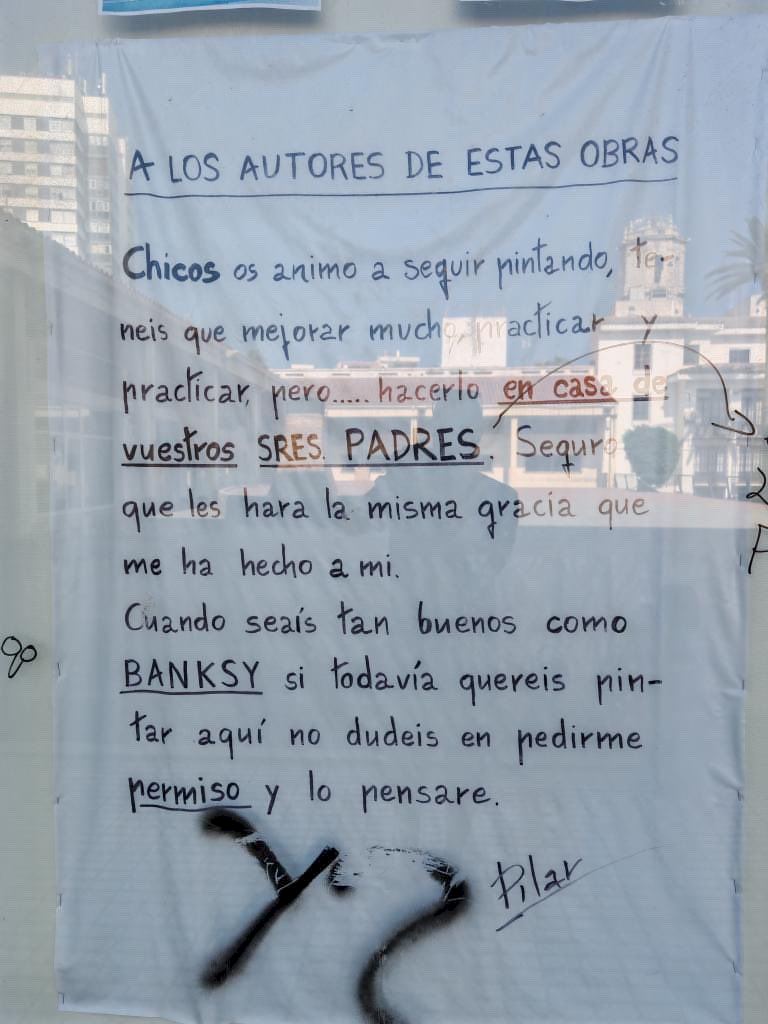 A LOS AUTORES DE ESTAS OBRAS
Chicos os animo a seguir pintando, te-
neis que mejorar mucho, practicar y
practicar, pero..... hacerlo en casa de
vuestros SRES. PADRES. Seguro
que les hara la misma gracia que
me ha hecho a mi.
Cuando seaís tan buenos como
BANKSY si todavía quereis pin-
tar aquí no dudeis en pedirme
permiso y lo pensare.
Pilar